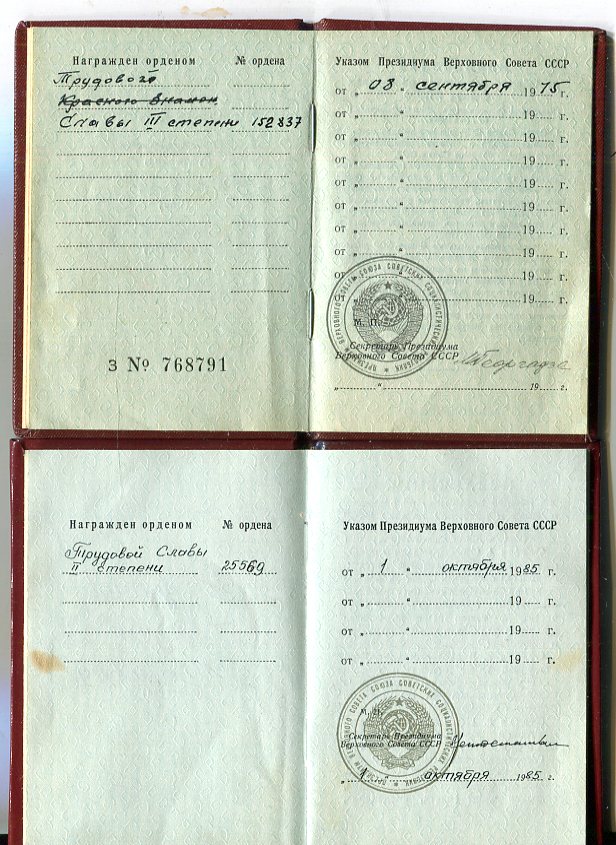 Награжден орденом № ордена
Трудового
Красного Знамени
Славы III степени 152837
З № 768791
Указом Президиума Верховного Совета СССР
от „ 03 “ сентября 1975 г.
от „ “ 19 г.
от „ “ 19 г.
от „ “ 19 г.
от „ “ 19 г.
от „ “ 19 г.
от „ “ 19 г.
от „ “ 19 г.
от „ “ 19 г.
от „ “ 19 г.
М. П.
Секретарь Президиума
Верховного Совета СССР
„ “ 19 г.
Награжден орденом № ордена
Трудовой Славы
II степени 25569
Указом Президиума Верховного Совета СССР
от „ 1 “ октября 1985 г.
от „ “ 19 г.
от „ “ 19 г.
от „ “ 19 г.
М. П.
Секретарь Президиума
Верховного Совета СССР
„ 1 “ октября 1985 г.